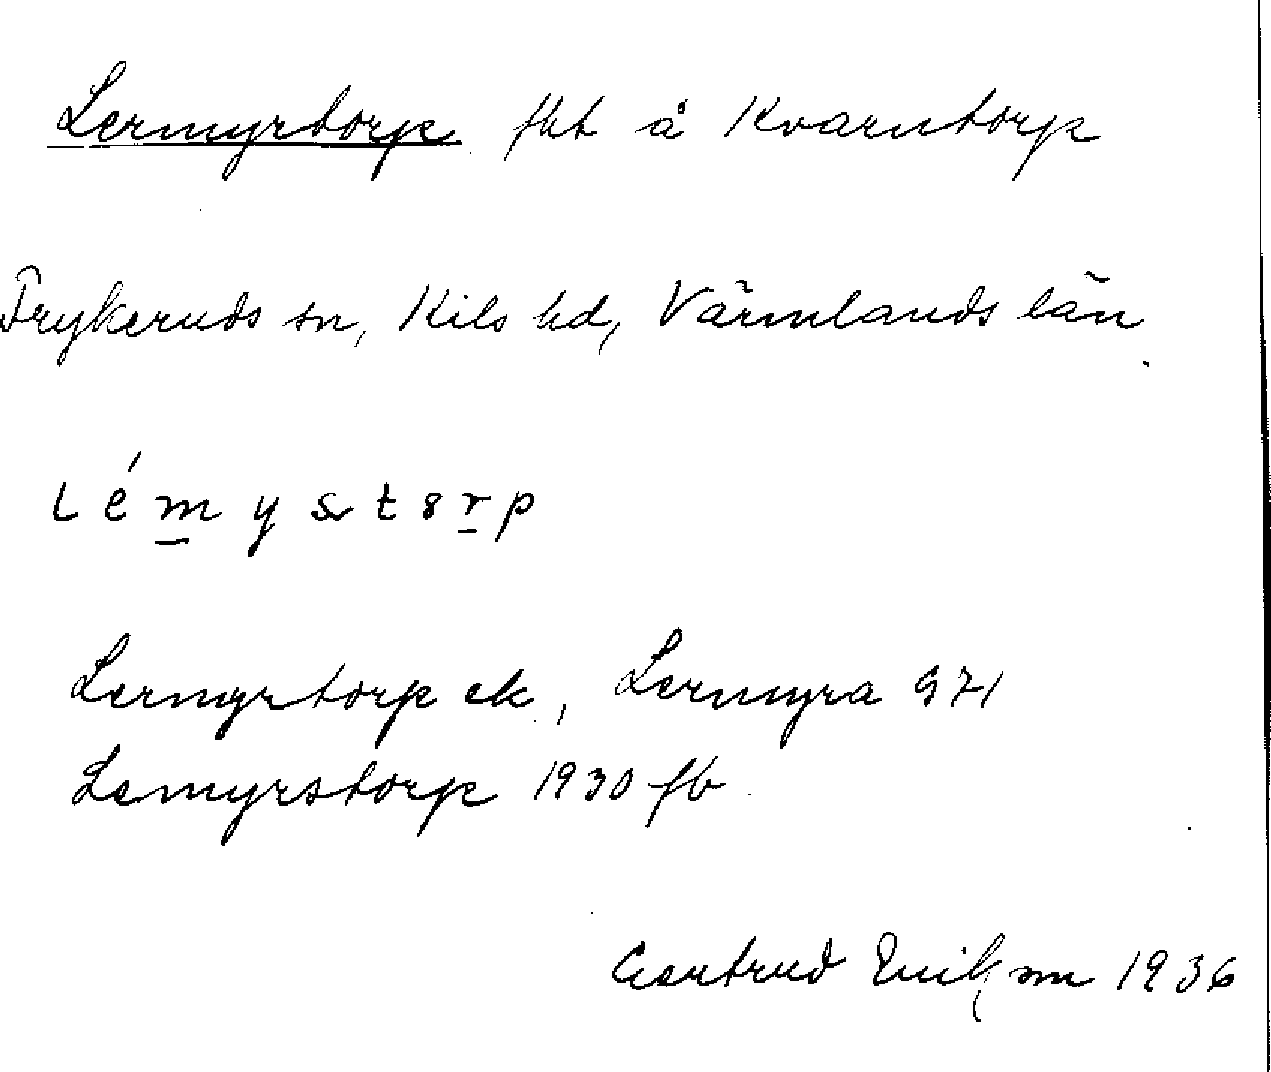 Lermyrtorp fht å Kvarntorp
Frykeruds sn, Kils hd, Värmlands län
Lermyrtorp ek, Lermyra G71
Lemyrstorp 1930 fb
Gertrud 1936